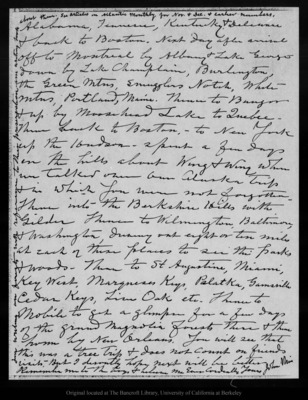 about them, see articles in Atlantic Monthly for Nov. & Dec. & earlier numbers,
Alabama, Tennessee, Kentucky, Delaware
& back to Boston. Next day after arrival
off to Montreal by Albany & Lake George
down by Lake Champlain, Burlington,
the Green Mtns, Smugglers Notch, White
Mtns, Portland, Maine. Thence to Bangor
& up by Moosehead Lake to Quebec.
Thence back to Boston, - to New York
up the Hudson - spent a few days
on the hills about Wing & Wing where
we talked over our Alaska trip
& in which you were not forgotten.
Thence into the Berkshire Hills with
Gilder. Thence to Wilmington, Baltimore,
& Washington, driving out eight or ten miles
at each of these places to see the Parks
& woods - Then to St Augustine, Miami,
Key West, Marquesas Keys, Palatka, Gainsville
Cedar Keys, Live Oak etc. Thence to
Mobile to get a glimpse for a few days
of the Grand Magnolia forest there & then
home by New Orleans. You will see that
this was a tree trip & does not count on friends
visits - But I devoutly hope next will be better.
Remember me to the boys & believe me Ever Cordially Yours, John Muir
Original located at The Bancroft Library, University of California at Berkeley